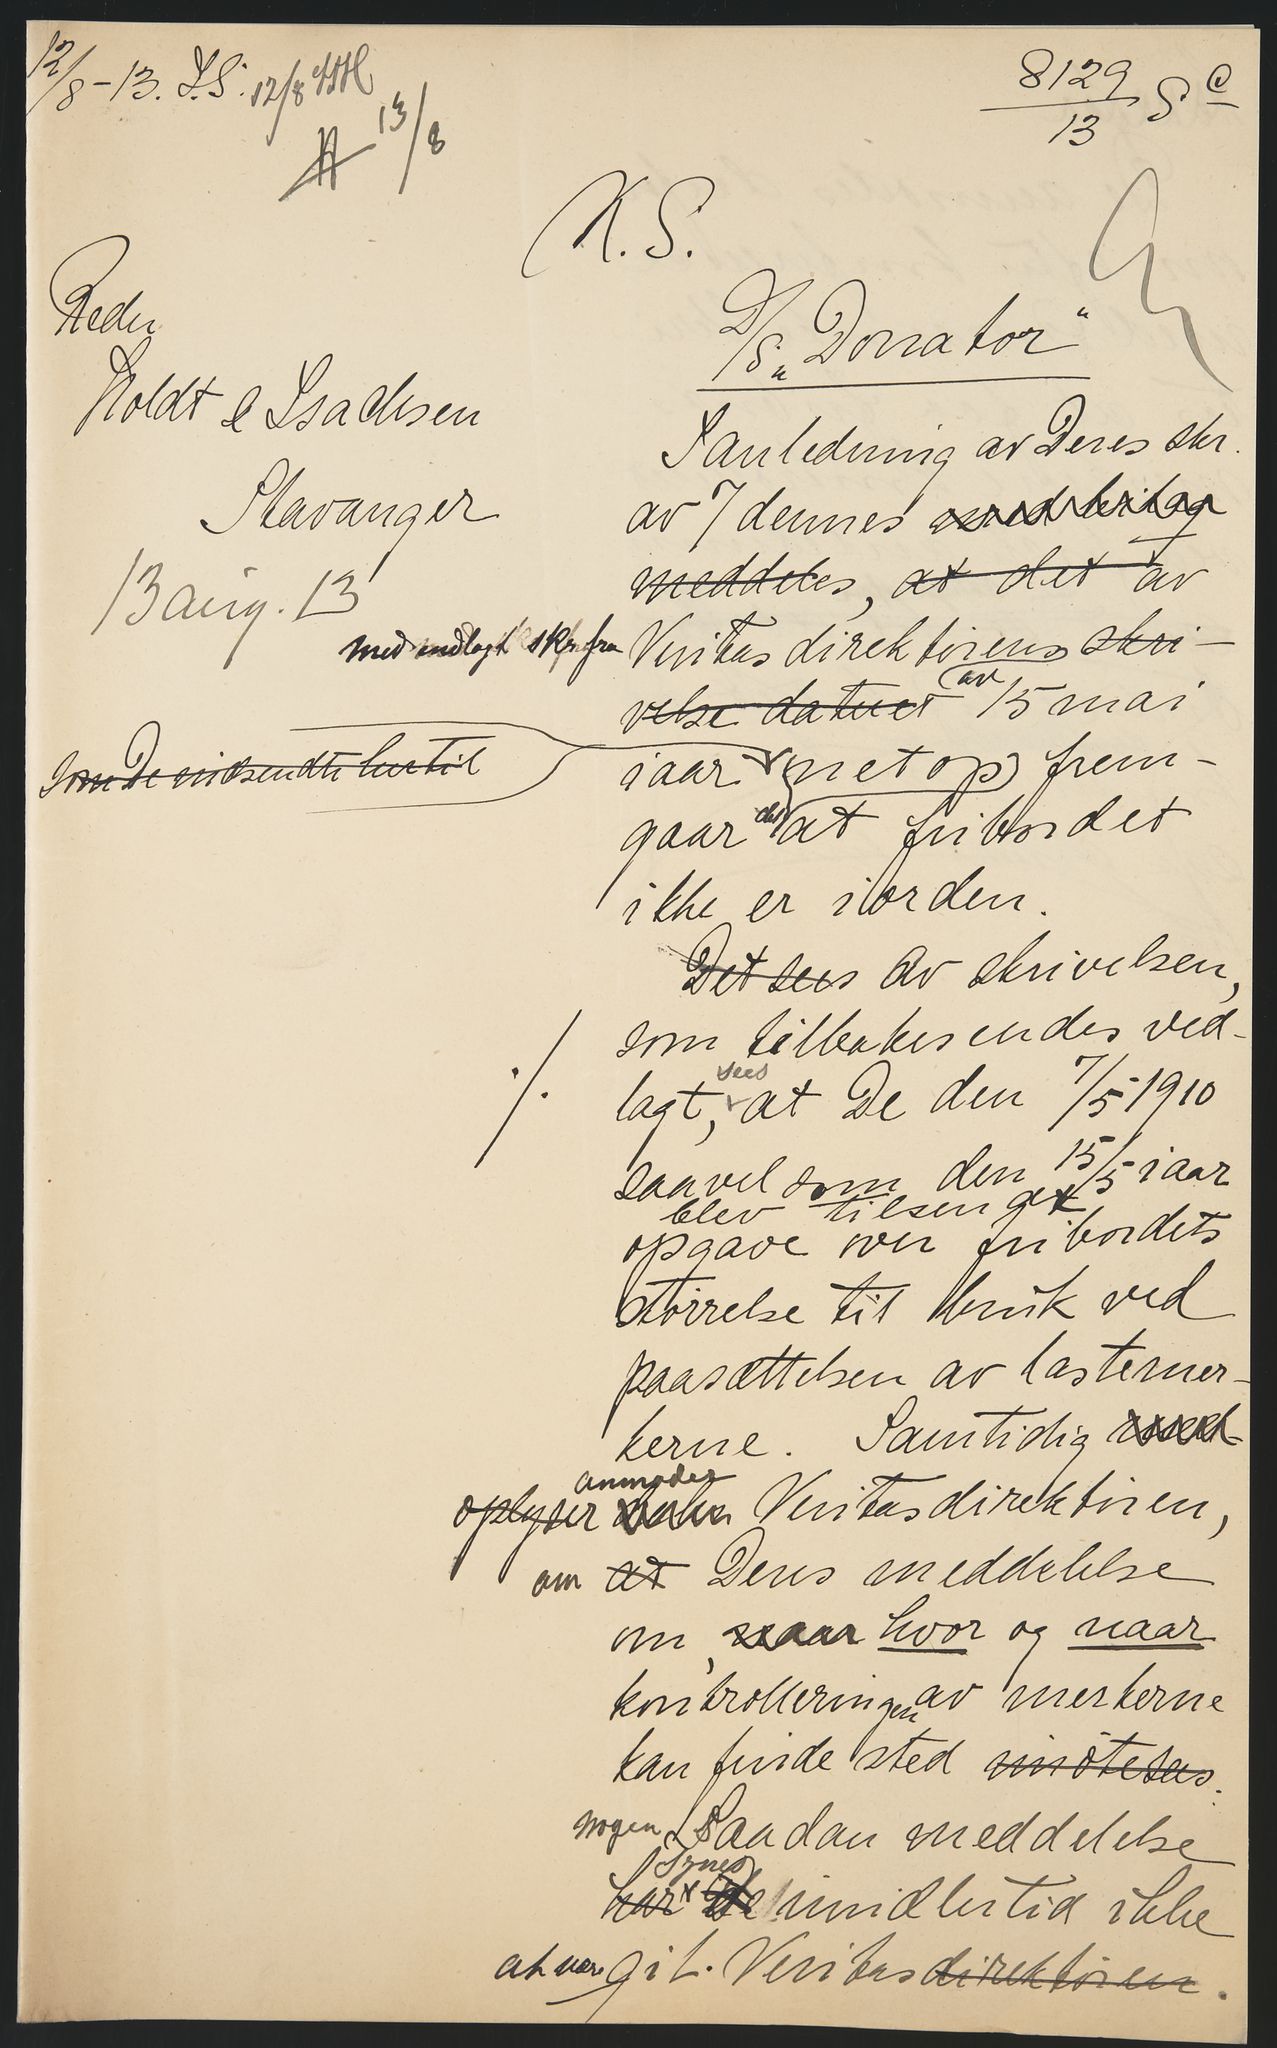 12/8-13. S.S. 12/8
13/8
8129/13 S C
K. S.
Reder
Holdt & Isachsen
Stavanger
13 aug. 13
D/S. "Donator"
I anledning av Deres skr.
av 7 dennes med bilag
meddeles, at det av
med indlagt skr. fra Veritasdirektørens skri-
velse datert av 15 mai
som De indsendte hertil
iaar netop frem-
gaar det, at fribordet
ikke er iorden.
Det sees Av skrivelsen,
som tilbakesendes ved-
./. lagt, sees at De den 7/5 1910
saavel som den 15/5 iaar
blev tilsendt
opgave over fribordets
størrelse til bruk ved
paasættelsen av lastemer-
kerne. Samtidig med-
anmodet
oplyser Veritasdirektøren,
om at Deres meddelelse
om, naar hvor og naar
kontrolleringen av merkerne
kan finde sted imøtesees.
nogen Saadan meddelelse
synes
har De imidlertid ikke
at være git. Veritasdirektøren.